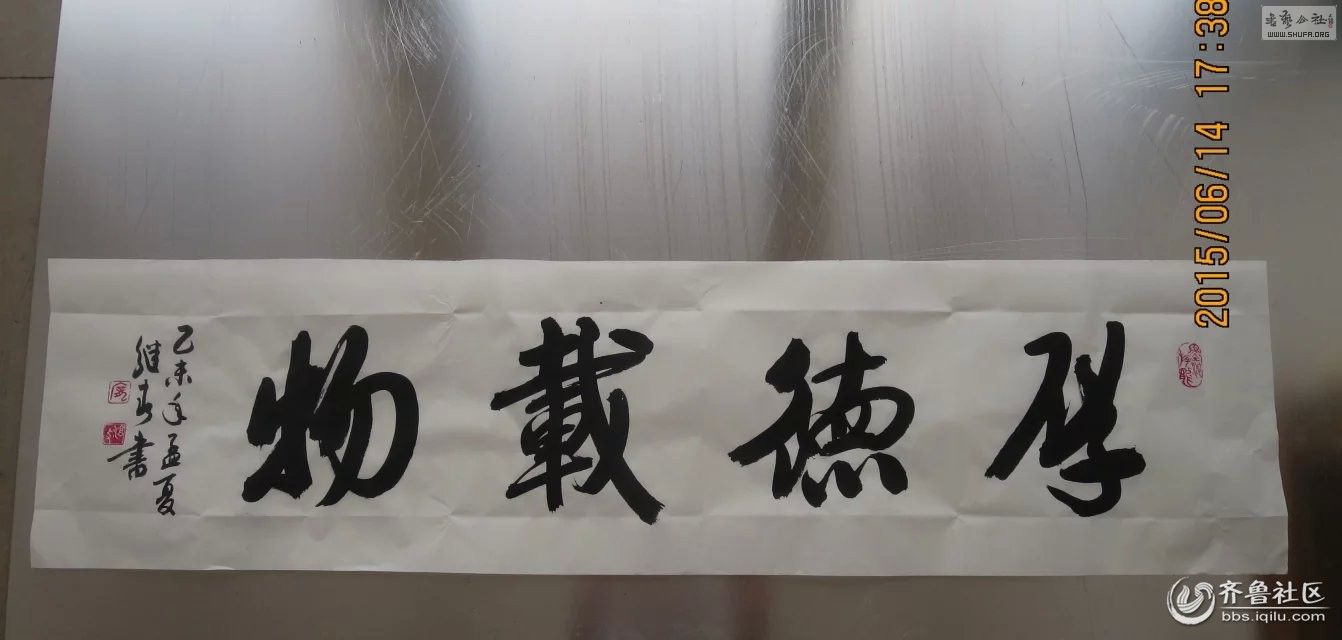 厚德載物
乙未年孟夏
继春书
2015/06/14 17:38
书艺公社
WWW.SHUFA.ORG
齐鲁社区
bbs.iqilu.com